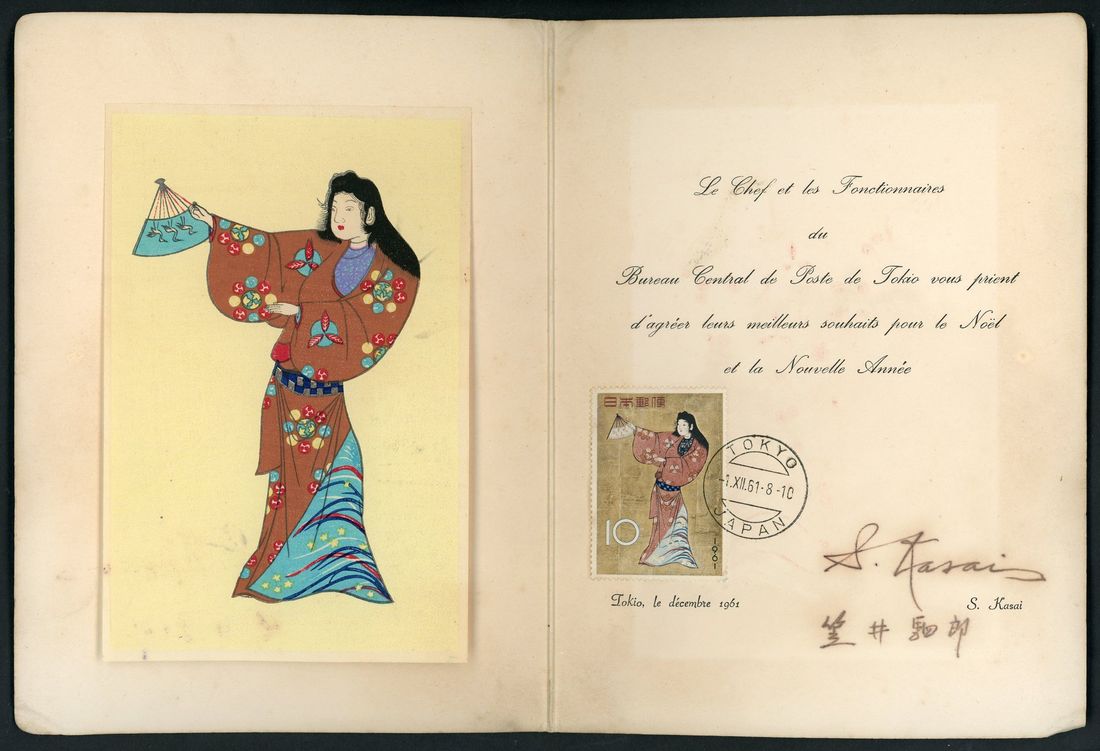 Le Chef et les Fonctionnaires
du
Bureau Central de Poste de Tokio vous prient
d'agréer leurs meilleurs souhaits pour le Noël
et la Nouvelle Année
日本郵便
10
1961
TOKYO
-1.XII.61-8-10
JAPAN
S. Kasai
Tokio, le décembre 1961
S. Kasai
笠井駟郎